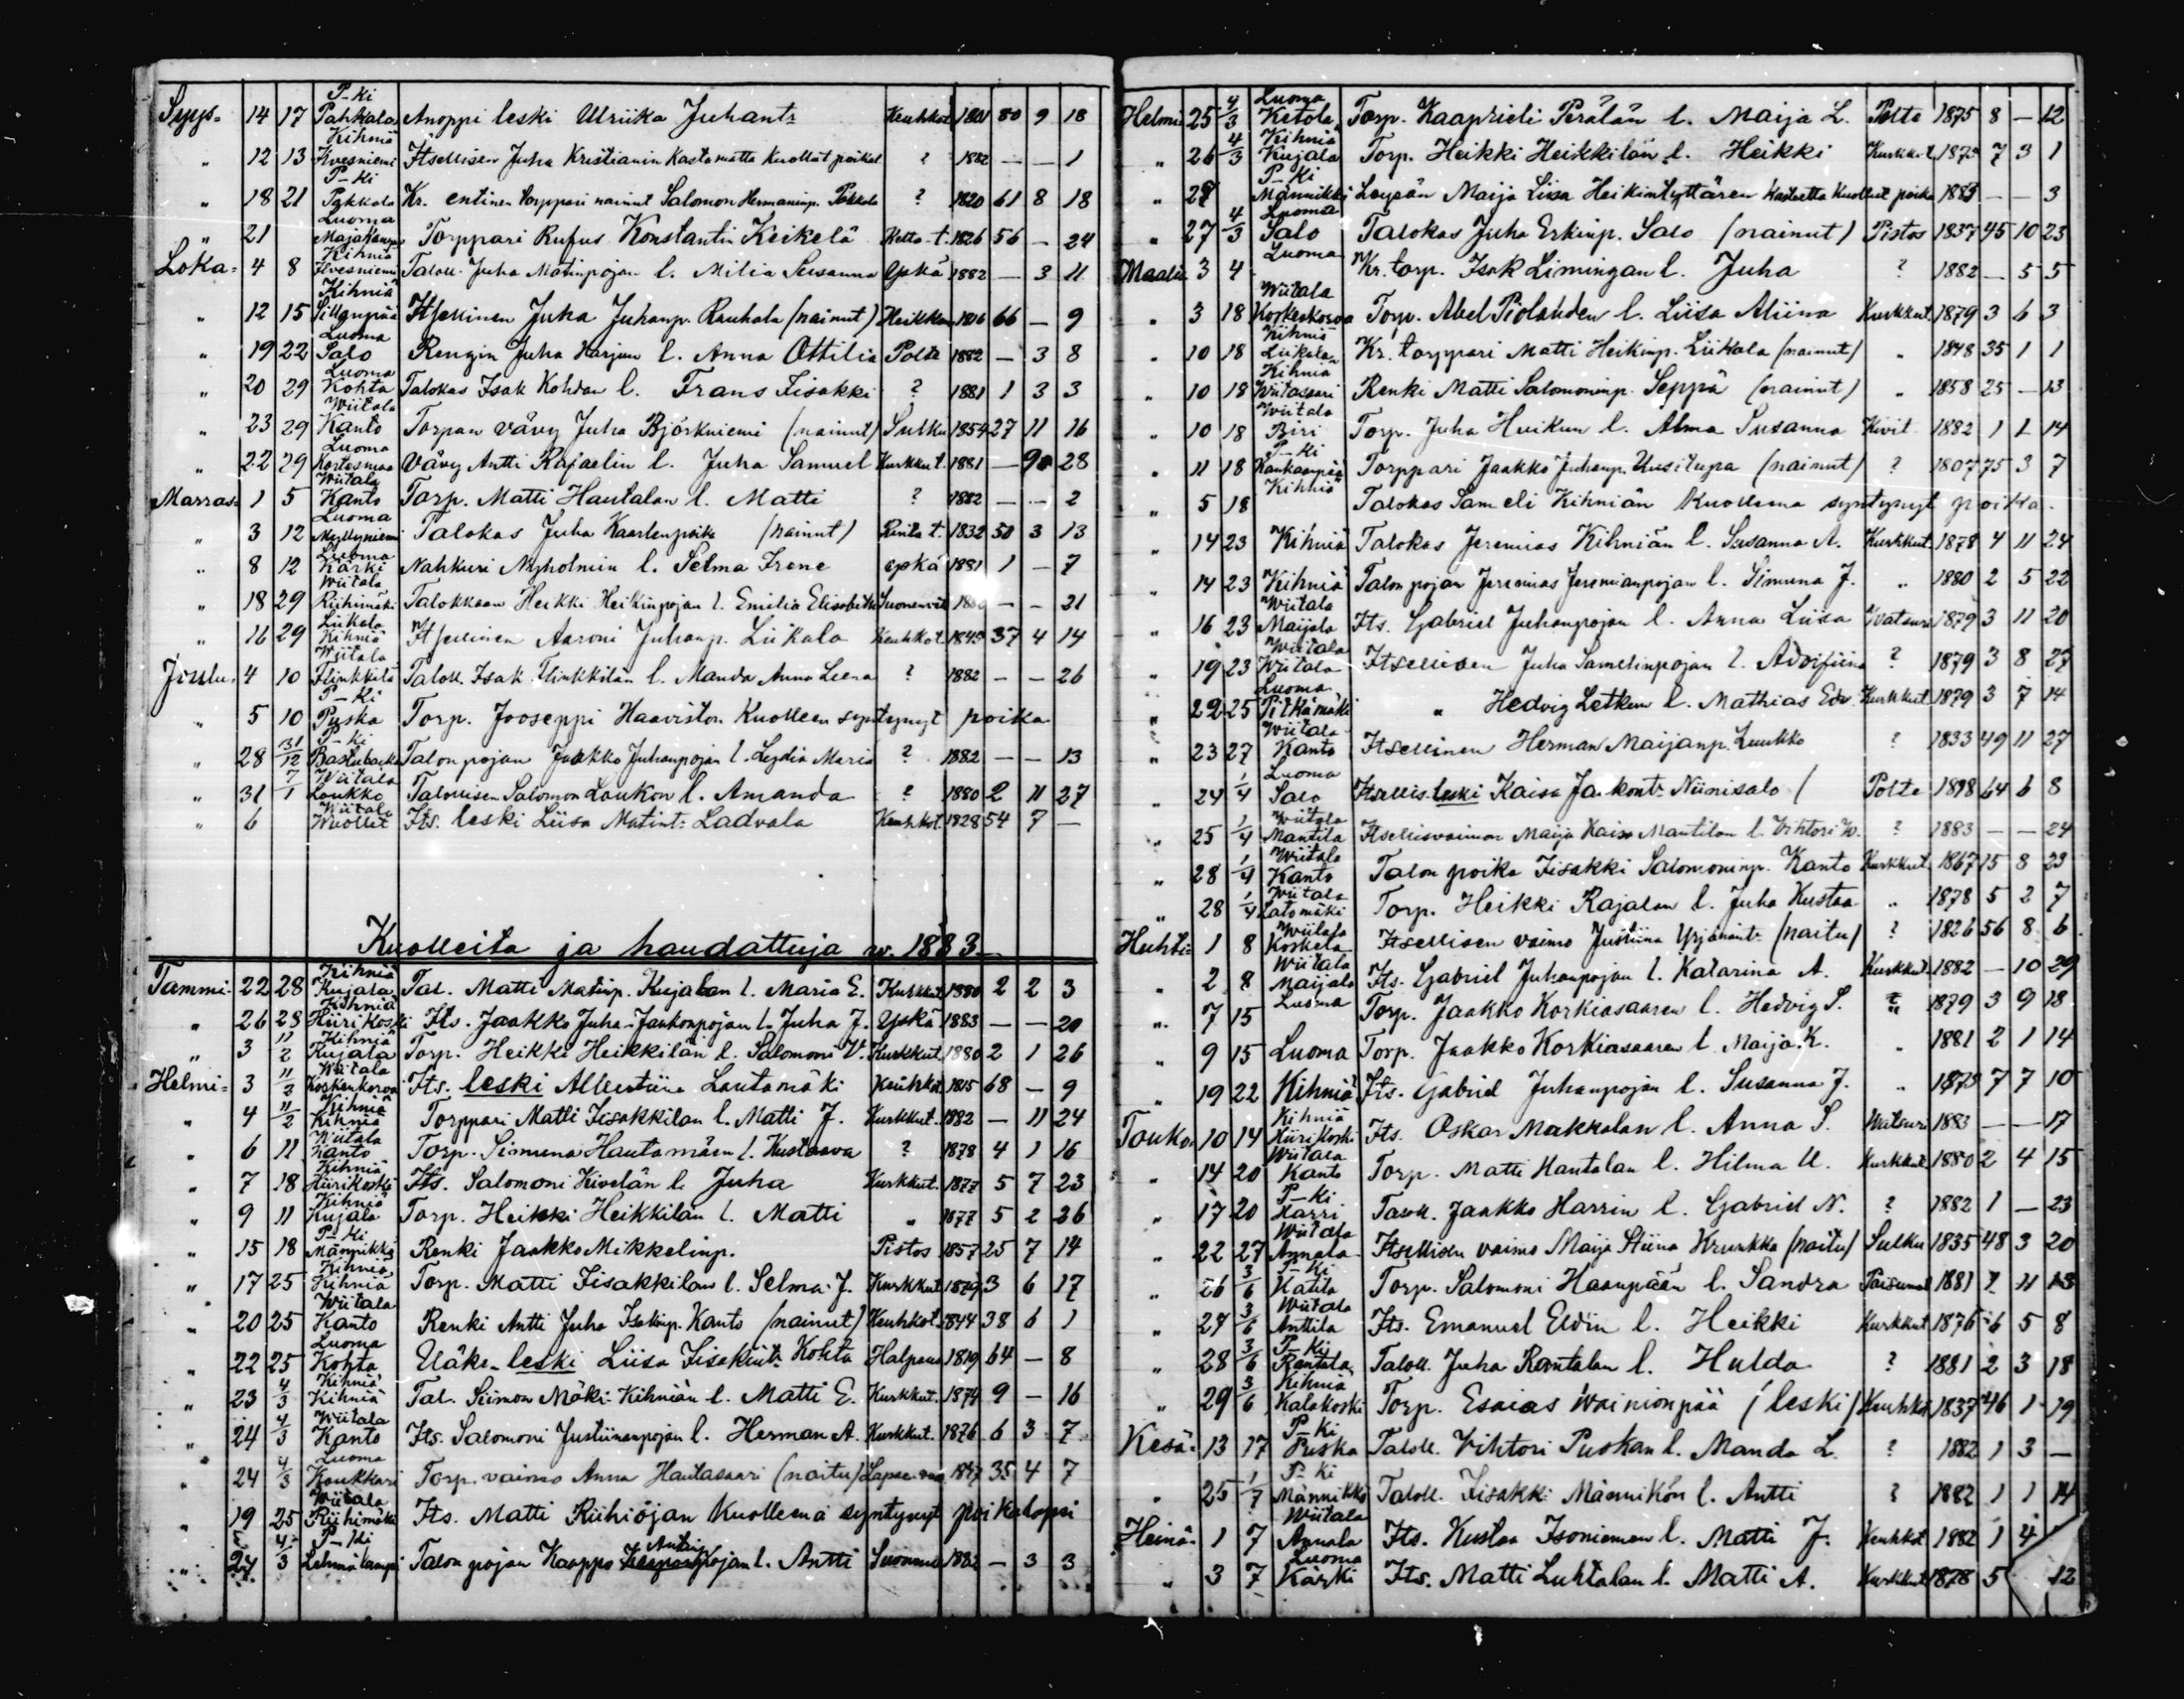 Syys- 14 17 P-ki Pahkala Anoppi leski Ulriika Juhantr Keuhkot 1801 80 9 18
„ 12 13 Kihniä Ilvesniemi Itsellisen Juha Kristianin Kastamatta Kuollut poika ? 1882 — — 1
„ 18 21 P-ki Pakkala Kr. entinen torppari nainut Salomon Hermaninp. Pakkala ? 1820 61 8 18
„ 21 Luoma Torppari Rufus Konstantin Keikelä Kotta-t. 1826 56 — 24
Loka- 4 8 Kihniä Ilvesniemi Taloll. Juha Matinpojan l. Milia Susanna Yskä 1882 — 3 11
„ 12 15 Kihniä Sillanpää Itsellinen Juha Juhanp. Rauhala (nainut) Heikkou 1816 66 — 9
„ 19 22 Luoma Salo Rengin Juha Harjun l. Anna Ottilia Polte 1882 — 3 8
„ 20 29 Luoma Kohta Talokas Isak Kohdan l. Frans Iisakki ? 1881 1 3 3
„ 23 29 Wiitala Kanto Torpan vävy Juha Björkniemi (nainut) Sulku 1854 27 11 16
„ 22 29 Luoma Kortesmaa Vävy Antti Rafaelin l. Juha Samuel Kurkkut. 1881 — 9 28
Marras- 1 5 Wiitala Kanto Torp. Matti Hautalan l. Matti ? 1882 — — 2
„ 3 12 Luoma Myllyniemi Talokas Juha Kaarlenpoika (nainut) Rinta t. 1832 50 3 13
„ 8 12 Luoma Kärki Nahkuri Nyholmin l. Selma Irene Yskä 1881 1 — 7
„ 18 29 Wiitala Riihimäki Talokkaan Heikki Heikinpojan l. Emilia Elisabeth Suonenvet — — 21
„ 16 29 Liikala Kihniä Itsellinen Aaroni Juhanp. Liikala Keuhkot. 1845 37 4 14
Joulu- 4 10 Wiitala Flinkkilä Taloll. Isak Flinkkilän l. Manda Anna Leena ? 1882 — — 26
„ 5 10 P-ki Puska Torp. Jooseppi Haaviston Kuolleen syntynyt poika
„ 28 31/12 P-ki Bastubacka Talon pojan Jaakko Juhanpojan l. Lydia Maria ? 1882 — — 13
„ 31 7/1 Wiitala Loukko Talollisen Salomon Loukon l. Amanda ? 1880 2 11 27
„ 6 Wiitala Wuollet Its. leski Liisa Matint: Ladvala Keuhkot. 1828 54 7 —
Kuolleita ja haudattuja w. 1883
Tammi- 22 28 Kihniä Kujala Tal. Matti Matinp. Kujalan l. Maria E. Kurkkut. 1880 2 2 3
„ 26 28 Kihniä Hiirikoski Its. Jaakko Juha-Jaakonpojan l. Juha J. Yskä 1883 — — 20
„ 3 11/2 Kihniä Kujala Torp. Heikki Heikkilän l. Salomoni V. Kurkkut. 1880 2 1 26
Helmi- 3 11/2 Wiitala Koskenkorva Its. leski Albertiina Lautamäki Keuhkot. 1815 68 — 9
„ 4 11/2 Kihniä Kihniä Torppari Matti Iisakkilan l. Matti J. Kurkkut. 1882 — 11 24
„ 6 11 Wiitala Kanto Torp. Simuna Hautamäen l. Kustaava ? 1878 4 1 16
„ 7 18 Kihniä Hiirikoski Its. Salomoni Kivelän l. Juha Kurkkut. 1877 5 7 23
„ 9 11 Kihniä Kujala Torp. Heikki Heikkilän l. Matti „ 1877 5 2 26
„ 15 18 P-ki Männikkö Renki Jaakko Mikkelinp. Pistos 1857 25 7 14
„ 17 25 Kihniä Kihniä Torp. Matti Iisakkilan l. Selma J. Kurkkut. 1879 3 6 17
„ 20 25 Wiitala Kanto Renki Antti Juha Isakinp. Kanto (nainut) Keuhkot. 1844 38 6 1
„ 22 25 Luoma Kohta Eläke-leski Liisa Iisakint: Kohta Halpaus 1819 64 — 8
„ 23 4/3 Kihniä Kihniä Tal. Siimon Mäki-Kihniän l. Matti E. Kurkkut. 1874 9 — 16
„ 24 4/3 Wiitala Kanto Its. Salomoni Justiinanpojan l. Herman A. Kurkkut. 1876 6 3 7
„ 24 4/3 Luoma Koukkari Torp. vaimo Anna Hautasaari (naitu) 1847 35 4 7
„ 19 25 Wiitala Riihimäki Its. Matti Riihiojan Kuolleena syntynyt poikalapsi
„ 24 4/3 P-ki Lehmälampi Talon pojan Kaappo Antinpojan l. Antti 1882 — 3 3
Helmi- 25 4/3 Luoma Ketola Torp. Kaaprieli Perälän l. Maija L. Polte 1875 8 — 12
„ 26 4/3 Kihniä Kujala Torp. Heikki Heikkilän l. Heikki Kurkkut. 1875 7 3 1
„ 27 P-ki Männikkö Loysän Maija Liisa Heikintyttären Kastetta Kuollut poika 1883 — — 3
„ 27 4/3 Luoma Salo Talokas Juha Erkinp. Salo (nainut) Pistos 1837 45 10 23
Maalis 3 4 Luoma Kr. torp. Isak Limingan l. Juha ? 1882 — 5 5
„ 3 18 Wiitala Koskenkorva Torp. Abel Piolahden l. Liisa Aliina Kurkkut. 1879 3 6 3
„ 10 18 Kihniä Liikala Kr. torppari Matti Heikinp. Liikala (nainut) „ 1848 35 1 1
„ 10 18 Kihniä Wiitasaari Renki Matti Salomoninp. Seppä (nainut) „ 1858 25 — 13
„ 10 18 Wiitala Biri Torp. Juha Huikun l. Alma Susanna Kivit. 1882 1 1 14
„ 11 18 P-ki Kankaanpää Torppari Jaakko Juhanp. Uusitupa (nainut) ? 1807 75 3 7
„ 5 18 Kihniä Talokas Sameli Kihniän Kuolleena syntynyt poika.
„ 14 23 Kihniä Talokas Jeremias Kihniän l. Susanna A. Kurkkut. 1878 4 11 24
„ 14 23 Kihniä Talon pojan Jeremias Jeremianpojan l. Simuna J. „ 1880 2 5 22
„ 16 23 Wiitala Maijala Its. Gabriel Juhanpojan l. Anna Liisa Watsuri 1879 3 11 20
„ 19 23 Wiitala Wiitala Itsellisen Juha Samelinpojan l. Adolfiina ? 1879 3 8 27
„ 22 25 Luoma Pitkämäki „ Hedvig Letken l. Mathias Edv. Kurkkut 1879 3 7 14
„ 23 27 Wiitala Kanto Itsellinen Herman Maijanp. Luukko ? 1833 49 11 27
„ 24 1/4 Luoma Salo Itsellis. leski Kaisa Jaakontr Niinisalo / Polte 1818 64 6 8
„ 25 1/4 Wiitala Mantila Itsellisvaimon Maija Kaisa Mantilan l. Vihtori W. ? 1883 — — 24
„ 28 1/4 Wiitala Kanto Talon poika Iisakki Salomoninp. Kanto Kurkkut. 1867 15 8 23
„ 28 1/4 Wiitala Latomäki Torp. Heikki Rajalan l. Juha Kustaa „ 1878 5 2 7
Huhti- 1 8 Wiitala Koskela Itsellisen vaimo Justiina Yrjänänt: (naitu) ? 1826 56 8 6
„ 2 8 Wiitala Maijala Its. Gabriel Juhanpojan l. Katarina A. Kurkkut. 1882 — 10 29
„ 7 15 Luoma Torp. Jaakko Korkiasaaren l. Hedvig S. „ 1879 3 9 18
„ 9 15 Luoma Torp. Jaakko Korkiasaaren l. Maija K. „ 1881 2 1 14
„ 19 22 Kihniä Its. Gabriel Juhanpojan l. Susanna J. „ 1875 7 7 10
Touko- 10 14 Kihniä Hiirikoski Its. Oskar Makkalan l. Anna S. Watsuri 1883 — — 17
„ 14 20 Wiitala Kanto Torp. Matti Hautalan l. Hilma U. Kurkkut. 1880 2 4 15
„ 17 20 P-ki Harri Taloll. Jaakko Harrin l. Gabriel N. ? 1882 1 — 23
„ 22 27 Wiitala Annala Itsellisen vaimo Maija Stiina Krunkka (naitu) Sulku 1835 48 3 20
„ 26 3/6 P-ki Katila Torp. Salomoni Haanpään l. Sandra Paisumat 1881 1 11 13
„ 27 3/6 Wiitala Anttila Its. Emanuel Eldin l. Heikki Kurkkut 1876 6 5 8
„ 28 3/6 P-ki Rantala Taloll. Juha Rantalan l. Hulda ? 1881 2 3 18
„ 29 3/6 Kihniä Kalakoski Torp. Esaias Wainionpää (leski) Keuhkot 1837 46 1 19
Kesä- 13 17 P-ki Puska Taloll. Vihtori Puskan l. Manda L. ? 1882 1 3 —
„ 25 1/7 P-ki Männikkö Taloll. Iisakki Männikön l. Antti ? 1882 1 1 14
Heinä- 1 7 Wiitala Annala Its. Kustaa Isoniemen l. Matti J. Keuhkot 1882 1 4
„ 3 7 Luoma Kärki Its. Matti Luhtalan l. Matti A. Kurkkut 1878 5 12